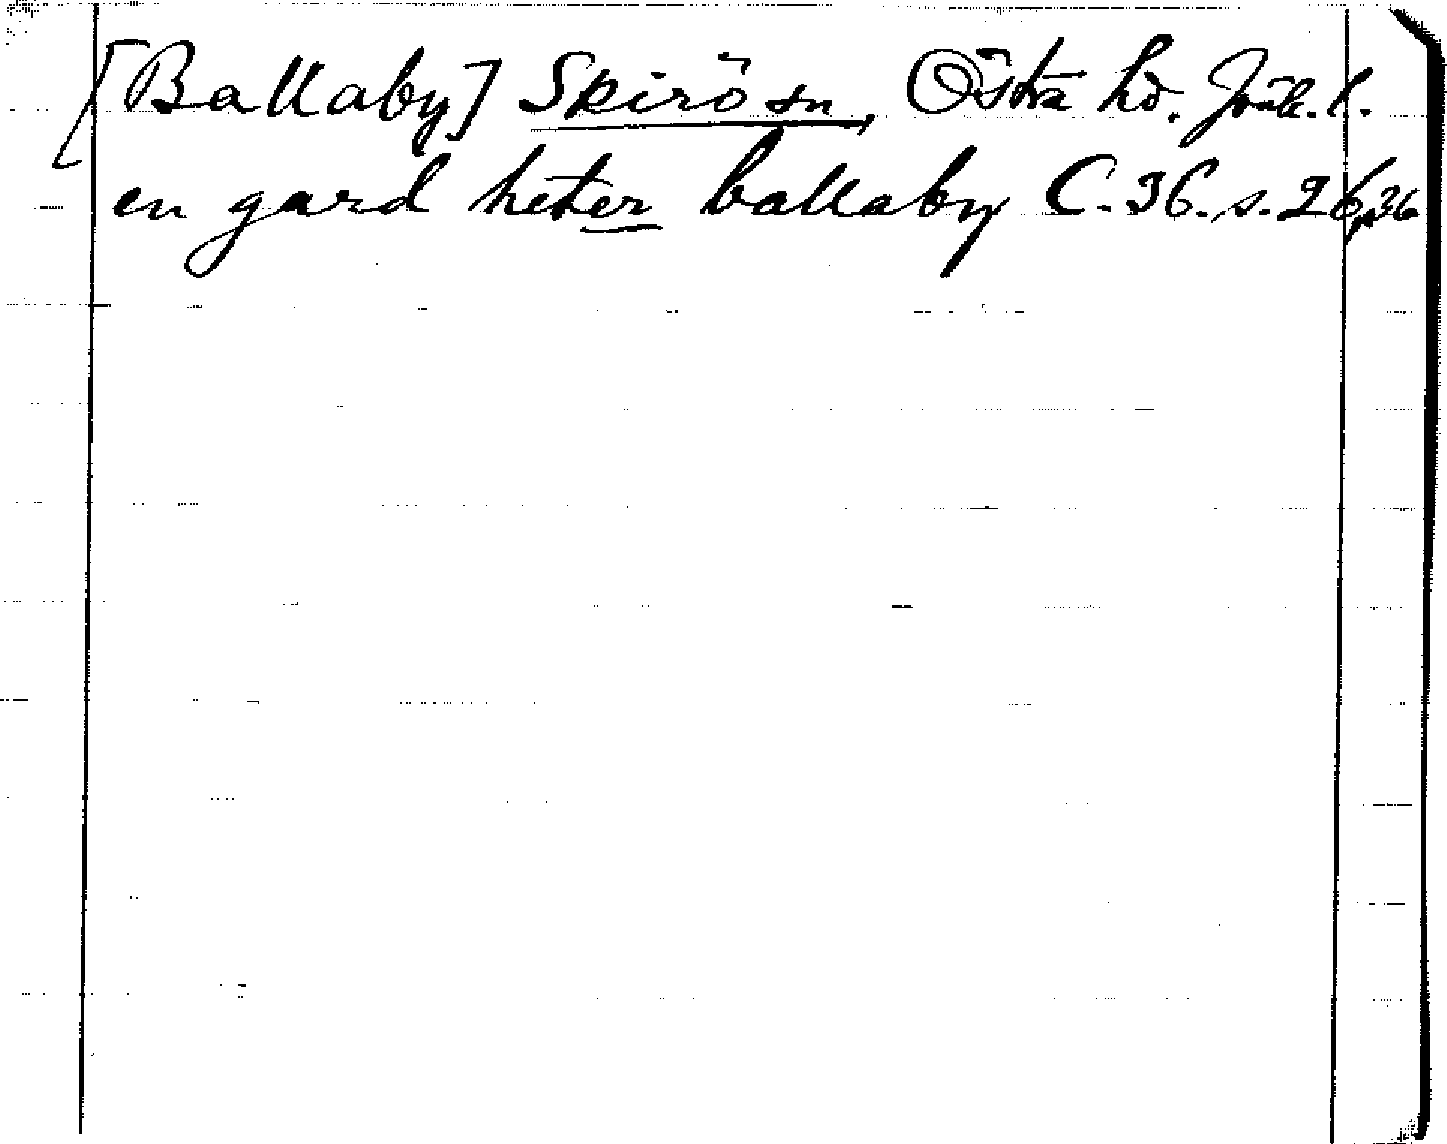 [Ballaby] Skirö sn, Östra hd. Jönk. l.
en gard heter ballaby C. 36. s. 26, 36